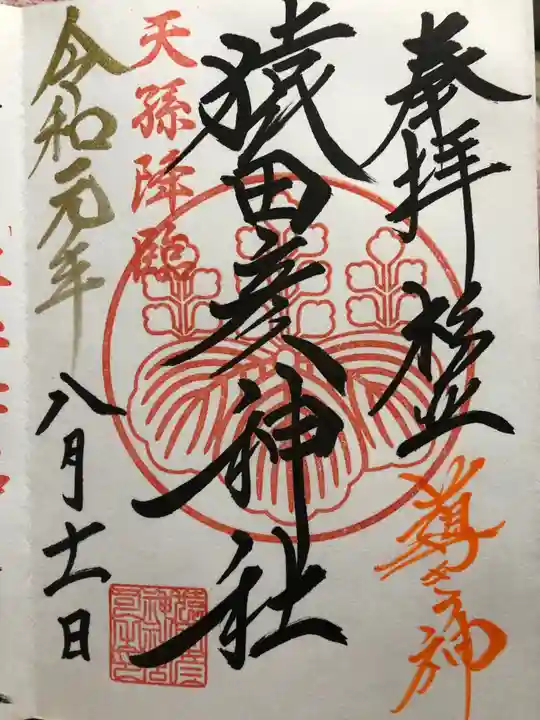 奉拝
猿田彦神社
天孫降臨
令和元年
八月十一日